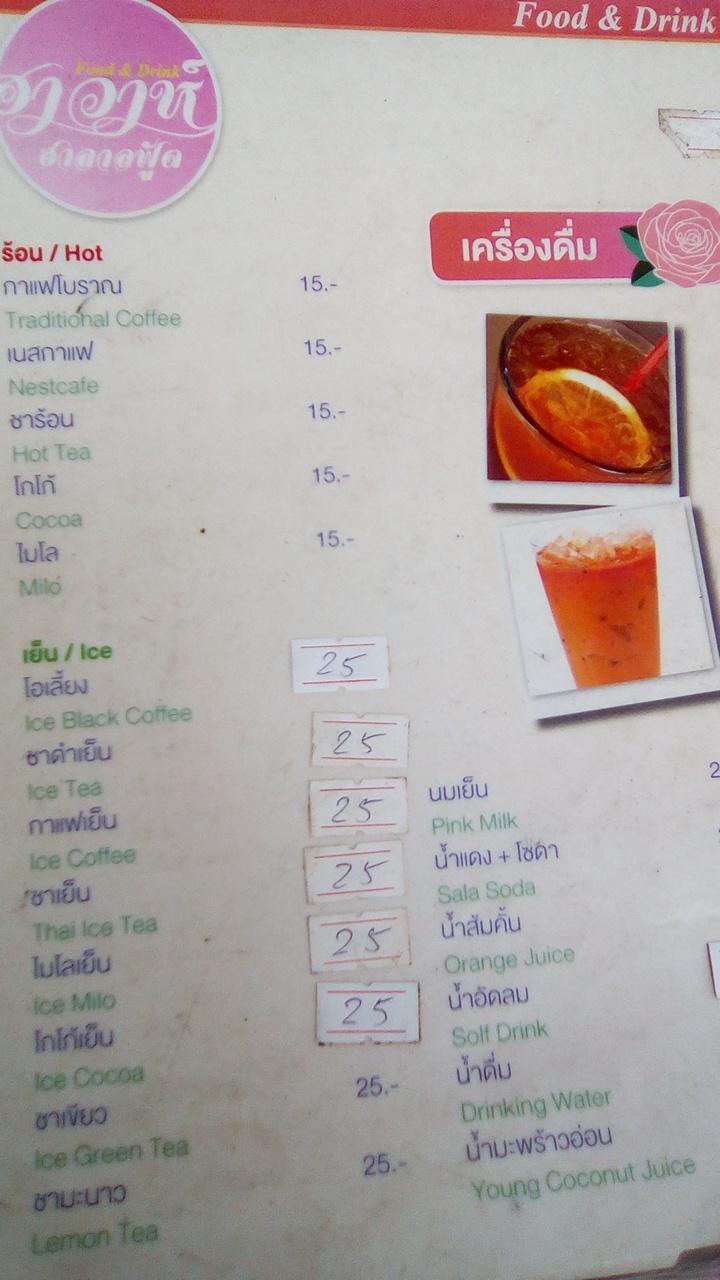 Food & Drink
Food & Drink
ฮาวาห์
ฮาลาลฟู้ด
เครื่องดื่ม
ร้อน / Hot
กาแฟโบราณ 15.-
Traditional Coffee
เนสกาแฟ 15.-
Nestcafe
ชาร้อน 15.-
Hot Tea
โกโก้ 15.-
Cocoa
ไมโล 15.-
Milo
เย็น / Ice
โอเลี้ยง 25
Ice Black Coffee
ชาดำเย็น 25
Ice Tea
กาแฟเย็น 25
Ice Coffee
ชาเย็น 25
Thai Ice Tea
ไมโลเย็น 25
Ice Milo
โกโก้เย็น 25
Ice Cocoa
ชาเขียว 25.-
Ice Green Tea
ชามะนาว 25.-
Lemon Tea
นมเย็น
Pink Milk
น้ำแดง + โซดา
Sala Soda
น้ำส้มคั้น
Orange Juice
น้ำอัดลม
Solf Drink
น้ำดื่ม
Drinking Water
น้ำมะพร้าวอ่อน
Young Coconut Juice